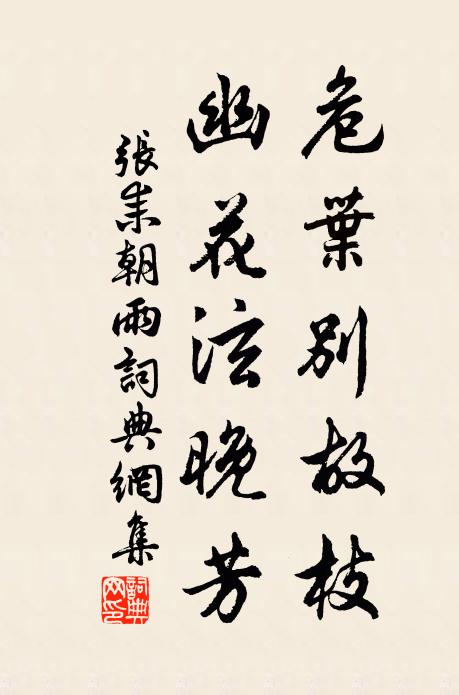 危葉別故枝
幽花泫晚芳
張耒朝雨詞典網集
詞典网印